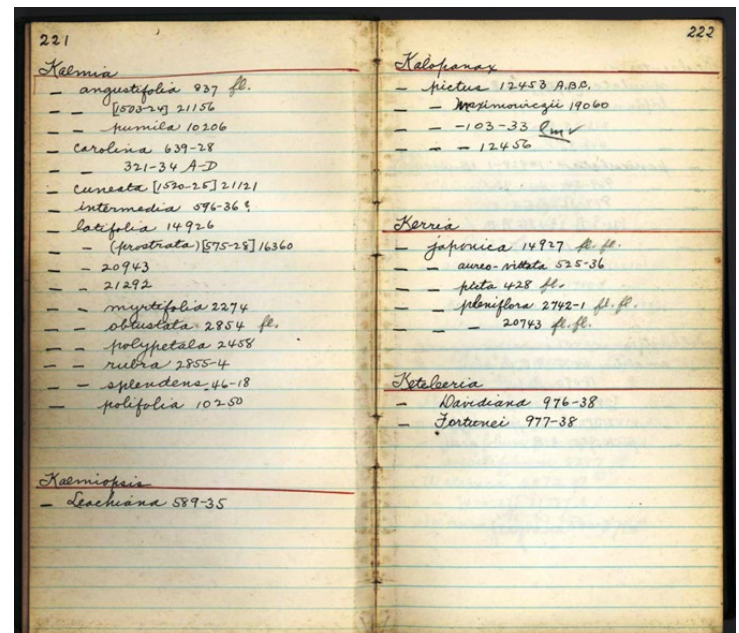 221
Kalmia
— angustifolia 837 fl.
— — [1503-24] 21156
— — pumila 10206
— carolina 639-28
— — 321-34 A-D
— cuneata [1520-25] 21121
— intermedia 596-36?
— latifolia 14926
— (prostrata) [575-28] 16360
— — 20943
— — 21292
— — myrtifolia 2274
— — obtustata 2854 fl.
— — polypetala 2458
— — rubra 2855-4
— — splendens 46-18
— polifolia 10250
Kalmiopsis
— Leachiana 589-35
222
Kalopanax
— pictus 12453 A.B.C.
— — Maximowiczii 19060
— — -103-33
— — — 12456
Kerria
— japonica 14927 fl. fl.
— — aureo-vittata 525-36
— — picta 428 fl.
— — pleniflora 2742-1 fl. fl.
— — — 20743 fl. fl.
Keteleeria
— Davidiana 976-38
— Fortunei 977-38